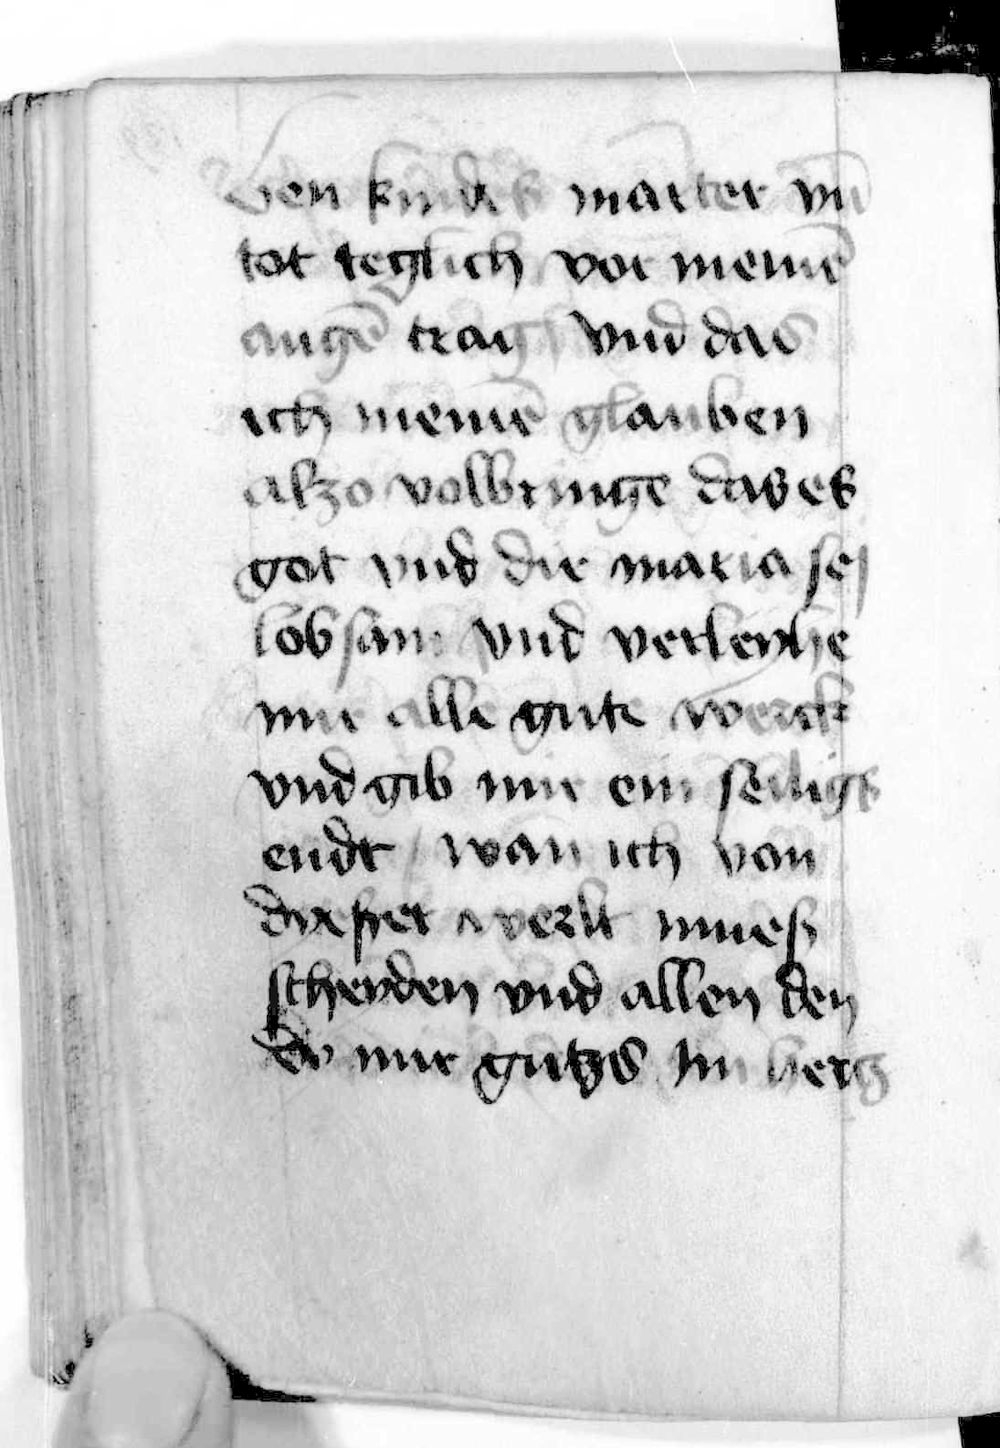 ben kindes marter vn̄
tot teglich vor meinē
augē trag vnd das
ich meinē glauben
alszo volbringe das es
got vnd dir maria sej
lobsam vnd verleyhe
mir alle gute werck
vnd gib mir ein seiligs
endt / wān ich von
dyeser werlt mues
scheyden vnd allen den
dy mir gutzs hn herg